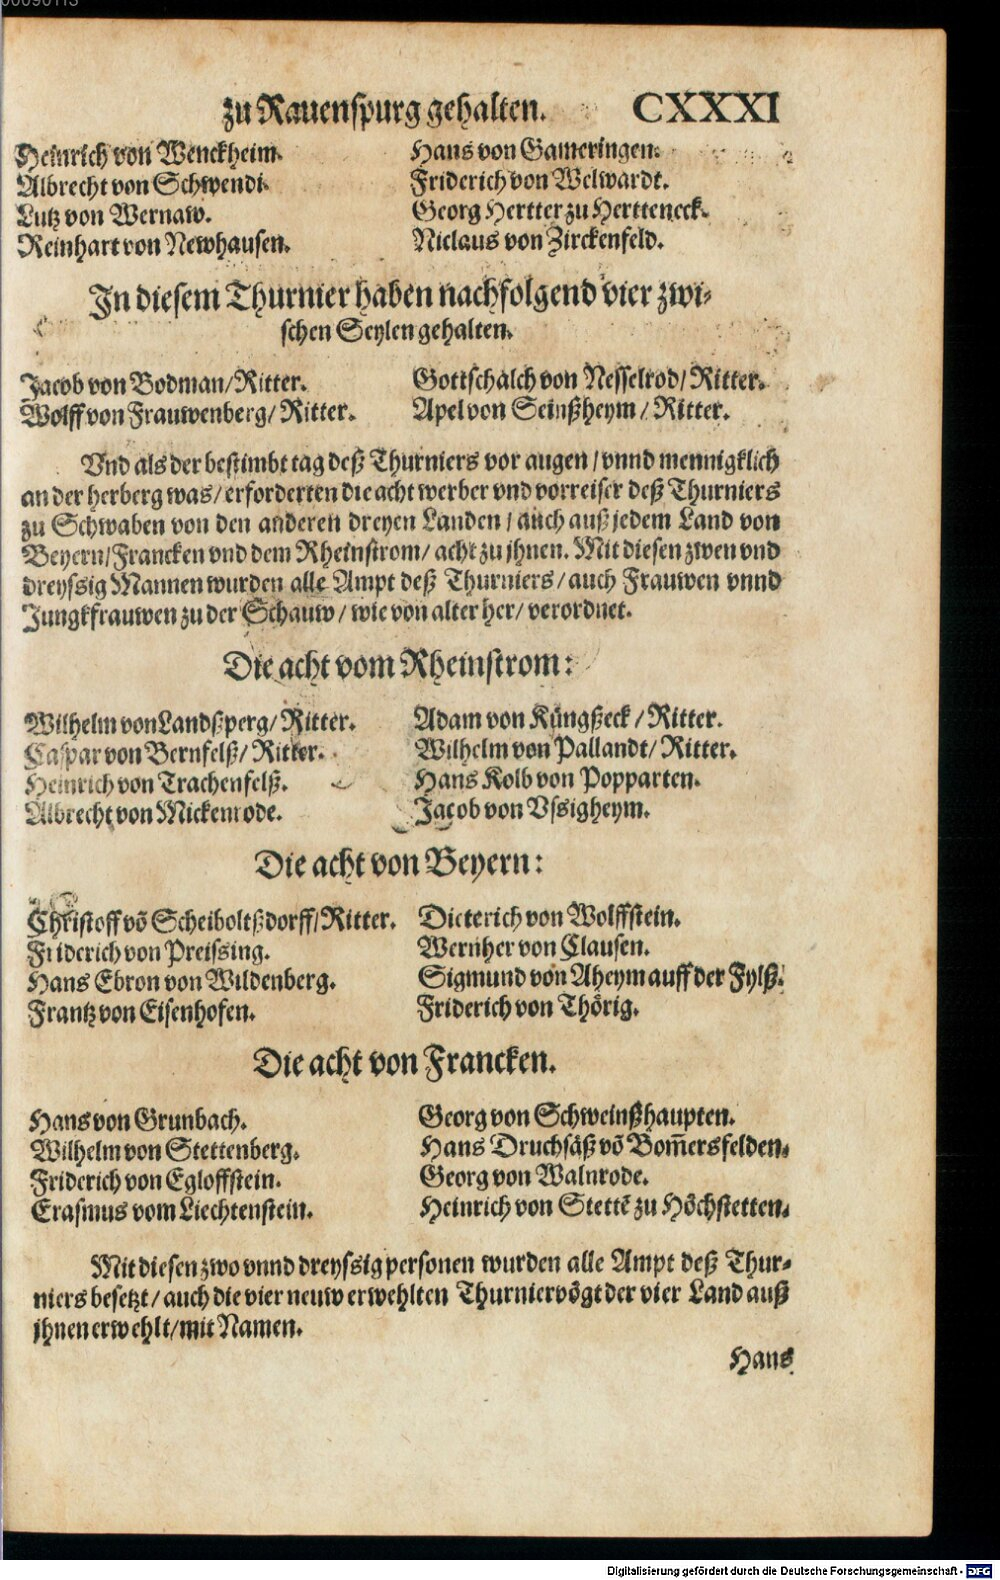 zu Rauenspurg gehalten. CXXXI
Heinrich von Wenckheim.
Albrecht von Schwendi.
Lutz von Wernaw.
Reinhart von Newhausen.
Hans von Gameringen.
Friderich von Welwardt.
Georg Hertter zu Hertteneck.
Niclaus von Zirckenfeld.
In diesem Thurnier haben nachfolgend vier zwi-
schen Seylen gehalten.
Jacob von Bodman/Ritter.
Wolff von Frauwenberg/Ritter.
Gottschalch von Nesselrod/Ritter.
Apel von Seinßheym/Ritter.
Vnd als der bestimbt tag deß Thurniers vor augen/vnnd mennigklich
an der herberg was/erforderten die acht werber vnd vorreiser deß Thurniers
zu Schwaben von den anderen dreyen Landen/auch auß jedem Land von
Beyern/Francken vnd dem Rheinstrom/acht zu jhnen. Mit diesen zwen vnd
dreyssig Mannen wurden alle Ampt deß Thurniers/auch Frauwen vnnd
Jungkfrauwen zu der Schauw/wie von alter her/verordnet.
Die acht vom Rheinstrom:
Wilhelm von Landßperg/Ritter.
Caspar von Bernfelß/Ritter.
Heinrich von Trachenfelß.
Albrecht von Mickenrode.
Adam von Küngßeck/Ritter.
Wilhelm von Pallandt/Ritter.
Hans Kolb von Popparten.
Jacob von Vssigheym.
Die acht von Beyern:
Christoff võ Scheiboltßdorff/Ritter.
Friderich von Preissing.
Hans Ebron von Wildenberg.
Frantz von Eisenhofen.
Dieterich von Wolffstein.
Wernher von Clausen.
Sigmund von Aheym auff der Fylß.
Friderich von Thörig.
Die acht von Francken.
Hans von Grunbach.
Wilhelm von Stettenberg.
Friderich von Egloffstein.
Erasmus vom Liechtenstein.
Georg von Schweinßhaupten.
Hans Druchsäß võ Bom̃ersfelden.
Georg von Walnrode.
Heinrich von Stettẽ zu Höchstetten.
Mit diesen zwo vnnd dreyssig personen wurden alle Ampt deß Thur-
niers besetzt/auch die vier neuw erwehlten Thurniervögt der vier Land auß
jhnen erwehlt/mit Namen.
Hans
Digitalisierung gefördert durch die Deutsche Forschungsgemeinschaft - DFG